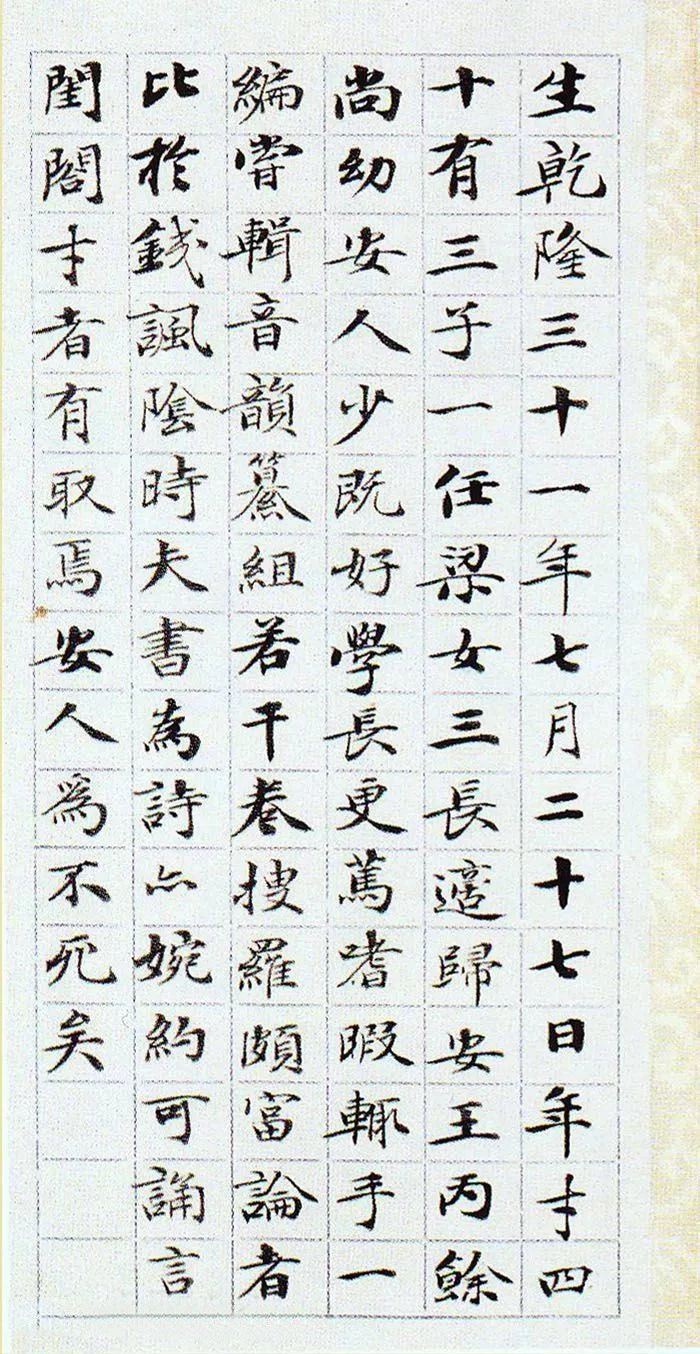 生乾隆三十一年七月二十七日年才四
十有三子一任梁女三長適歸安王丙餘
尚幼安人少既好學長更篤嗜暇輒手一
編嘗輯音韻纂組若干卷搜羅頗富論者
比於錢諷陰時夫書為詩亦婉約可誦言
閨閣才者有取焉安人爲不死矣